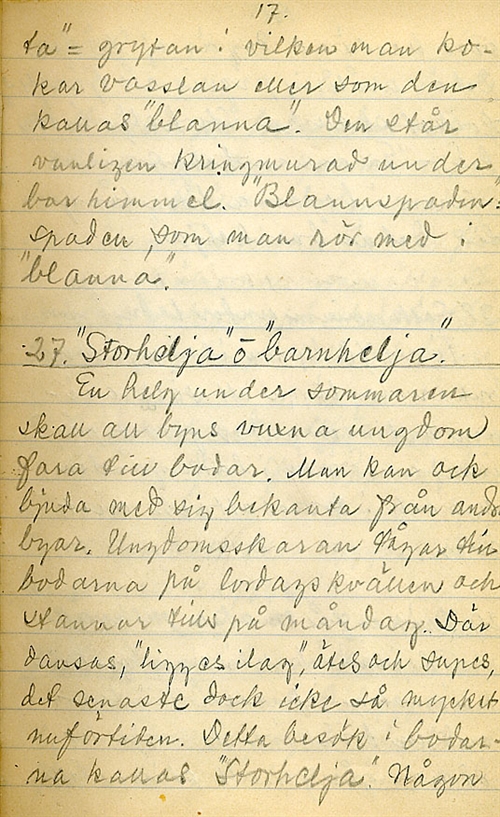 17.
ta" = grytan i vilken man ko-
kar vasslan eller som den
kallas "blanna". Den står
vanligen kringmurad under
bar himmel. "Blannspaden" =
spaden, som man rör med i
"blanna".
27. "Storhelja" ō "barnhelja."
En helg under sommaren
skall all byns vuxna ungdom
fara till bodar. Man kan ock
bjuda med sig bekanta från andra
byar. Ungdomsskaran tågar till
bodarna på lördagskvällen och
stannar tills på måndag. Där
dansas, "ligges ilag", ätes och supes,
det senaste dock icke så mycket
nuförtiden. Detta besök i bodar-
na kallas "Storhelja". Någon